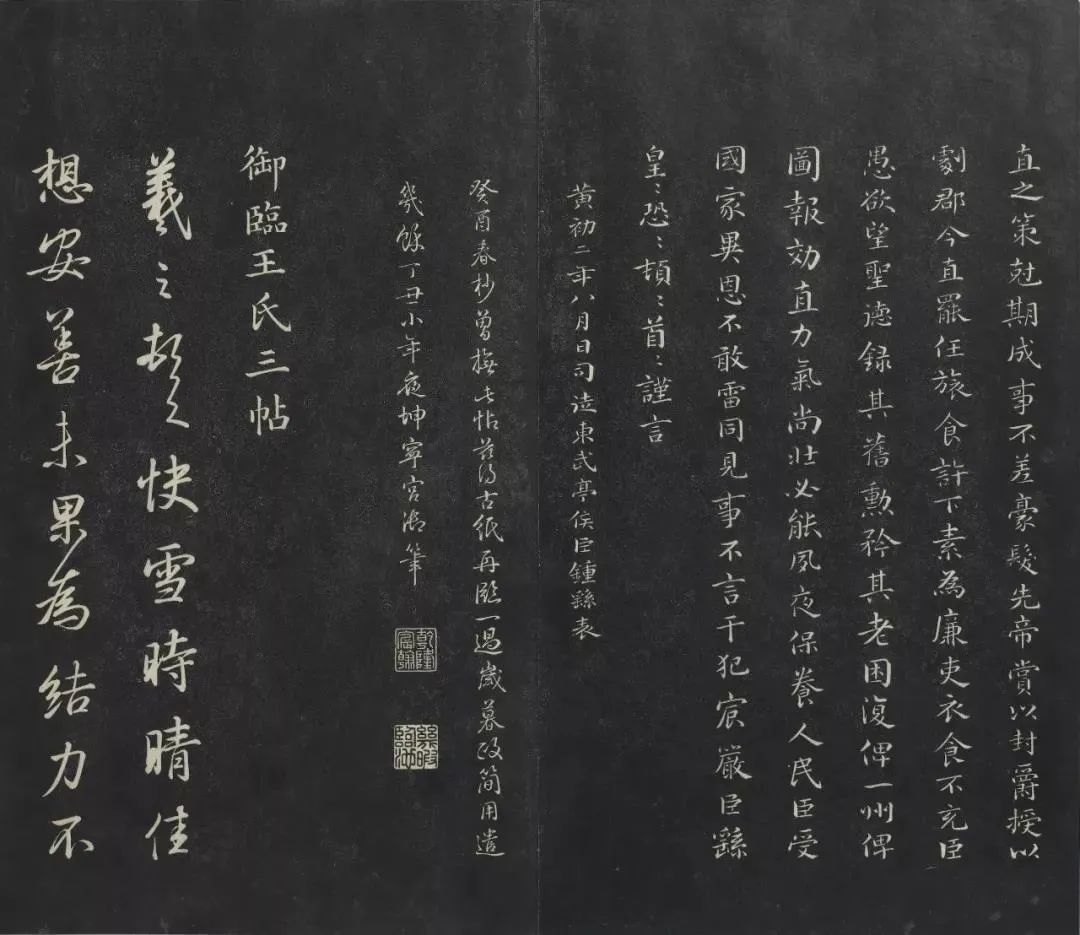 直之策尅期成事不差豪髮先帝賞以封爵授以
劇郡今直罷任旅食許下素為廉吏衣食不充臣
愚欲望聖德録其舊勳矜其老困復俾一州俾
圖報効直力氣尚壯必能夙夜保養人民臣受
國家異恩不敢雷同見事不言干犯宸嚴臣繇
皇〻恐〻頓〻首〻謹言
黃初二年八月日司徒東武亭侯臣鍾繇表
癸酉春杪曾撫此帖茲得古紙再臨一過歲暮政簡用遣
幾餘丁丑小年夜坤寧宮御筆
乾隆宸翰
御臨王氏三帖
羲之頓首快雪時晴佳
想安善未果為結力不